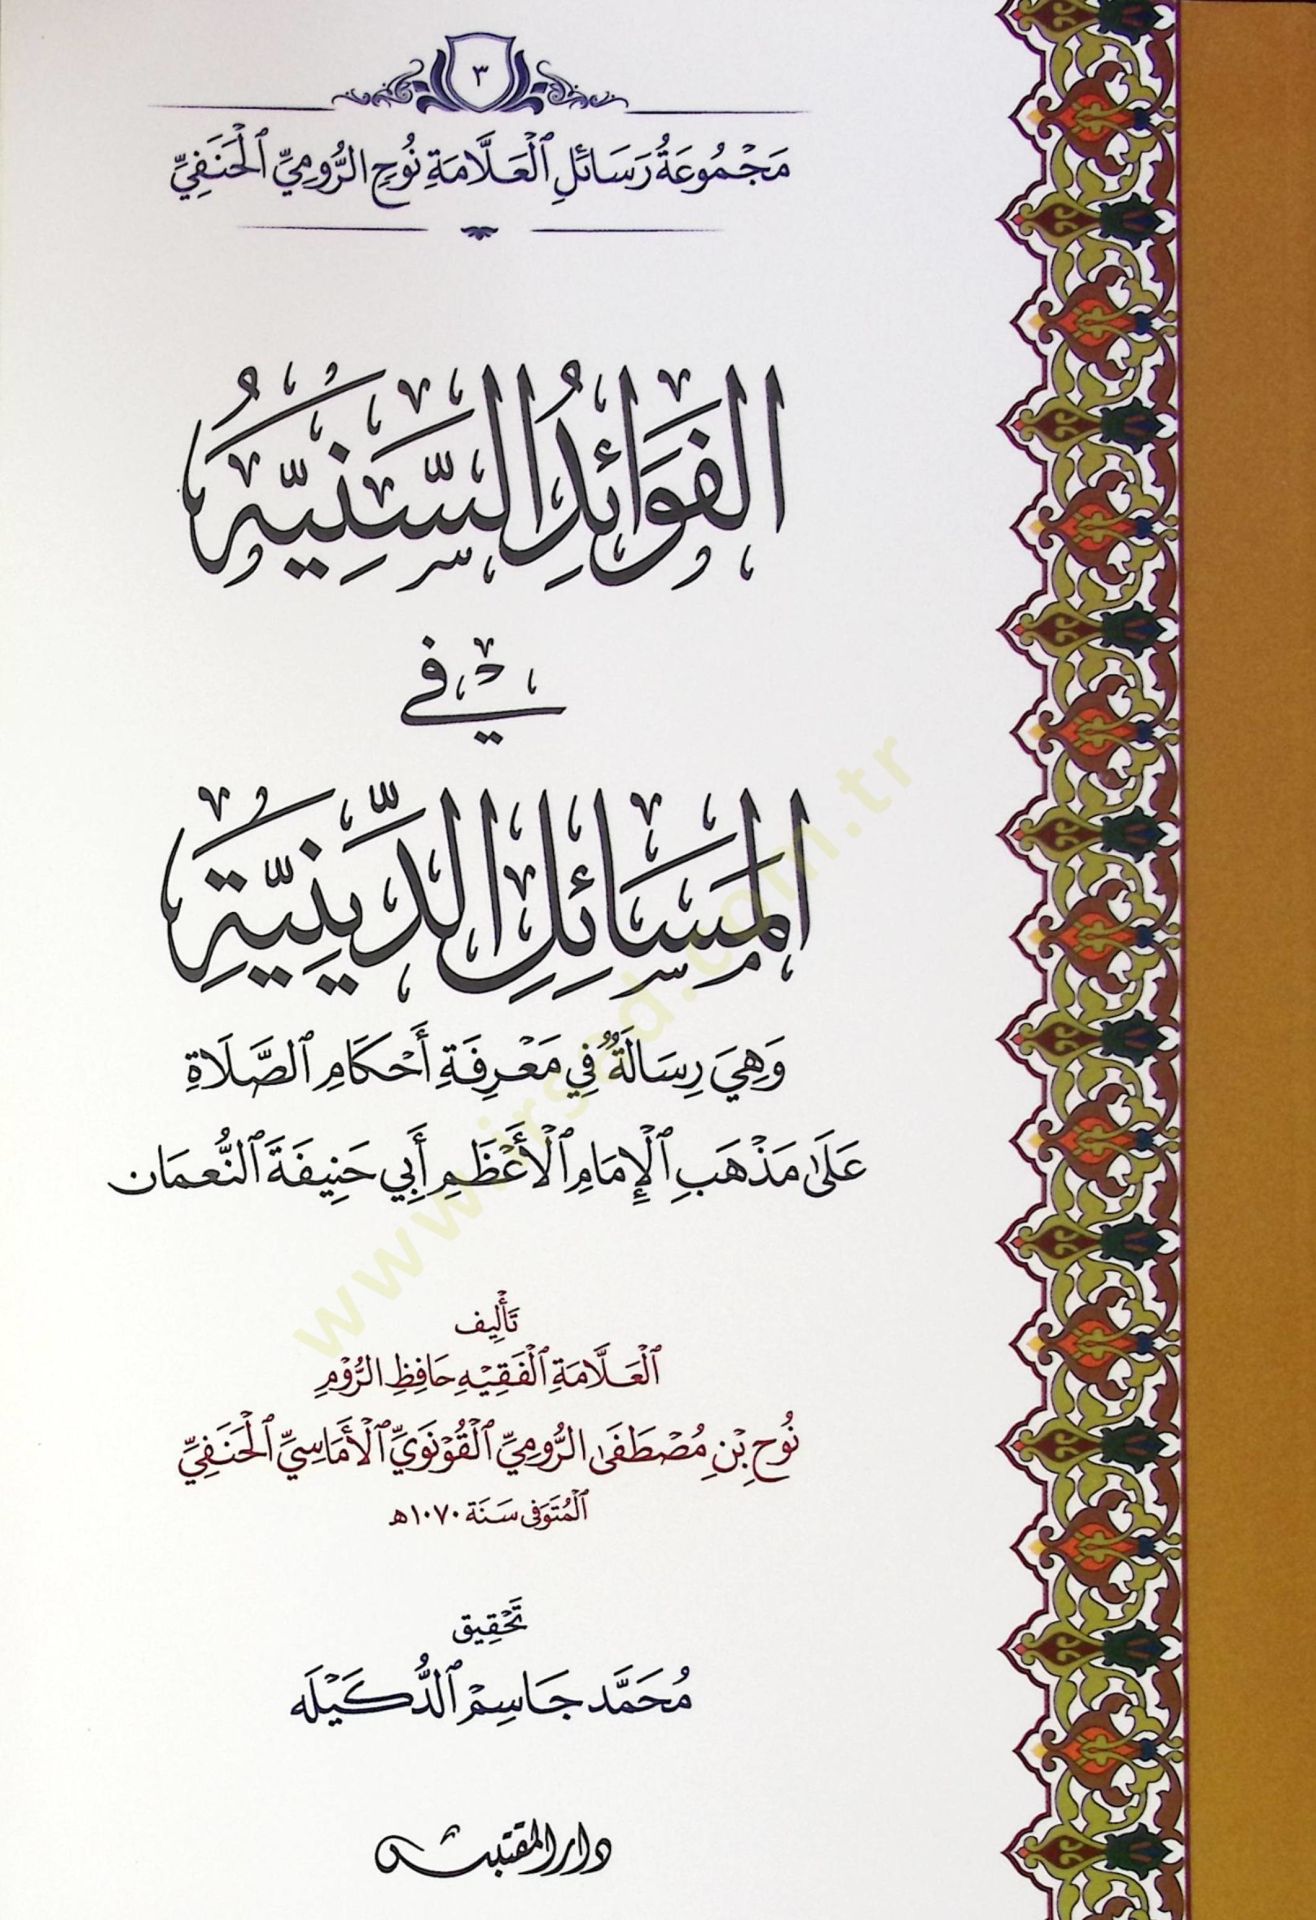 ٣
مَجْمُوعَةُ رَسَائِلِ ٱلْعَلَّامَةِ نُوحِ الرُّومِيِّ ٱلْحَنَفِيِّ
الفَوَائِدُ السَّنِيَّهُ
فِي
المَسَائِلِ الدِّينِيَّةِ
وَهِيَ رِسَالَةٌ فِي مَعْرِفَةِ أَحْكَامِ ٱلصَّلَاةِ
عَلَى مَذْهَبِ ٱلْإِمَامِ ٱلْأَعْظَمِ أَبِي حَنِيفَةَ ٱلنُّعمَان
تَأْلِيف
ٱلْعَلَّامَةِ ٱلْفَقِيْهِ حَافِظِ الرُّوْمِ
نُوْح بْنِ مُصْطَفَى الرُّومِيِّ ٱلْقُوْنَوِيِّ ٱلْأَمَاسِيِّ ٱلْحَنَفِيِّ
ٱلْمُتَوَفَى سَنَة ١٠٧٠هـ
تَحْقِيق
مُحَمَّد جَاسِمْ ٱلدُّكَيْلَه
دار المقتبس
www.irsad.com.tr